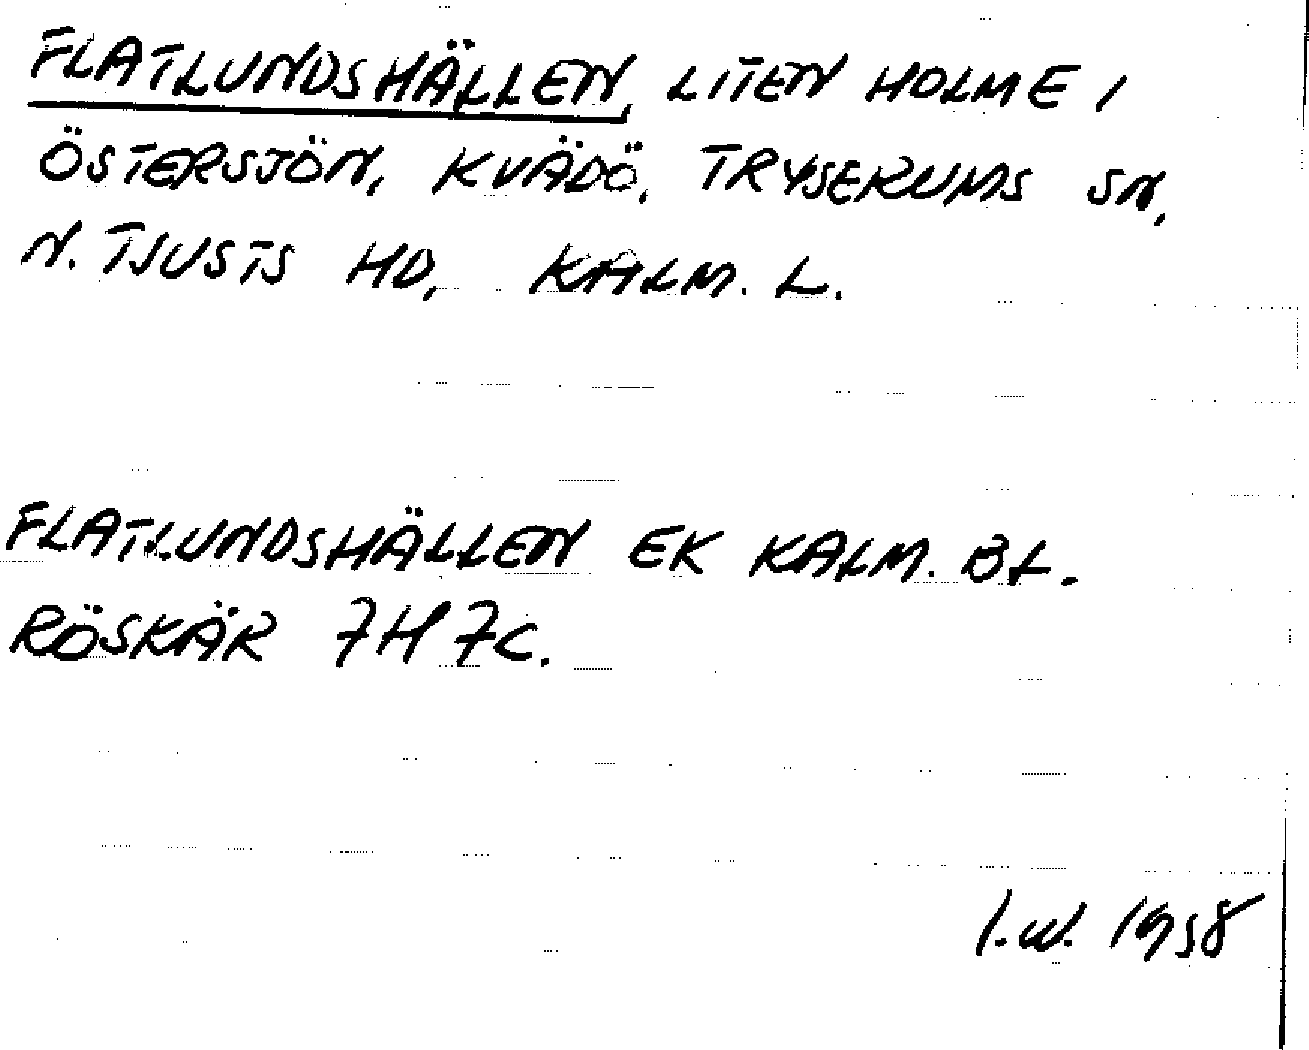 FLATLUNDSHÄLLEN, LITEN HOLME I
ÖSTERSJÖN, KVÄDÖ, TRYSERUMS SN,
N. TJUSTS HD, KALM. L.
FLATLUNDSHÄLLEN EK KALM. BL.
RÖSKÄR 7H 7C.
I.W. 1958